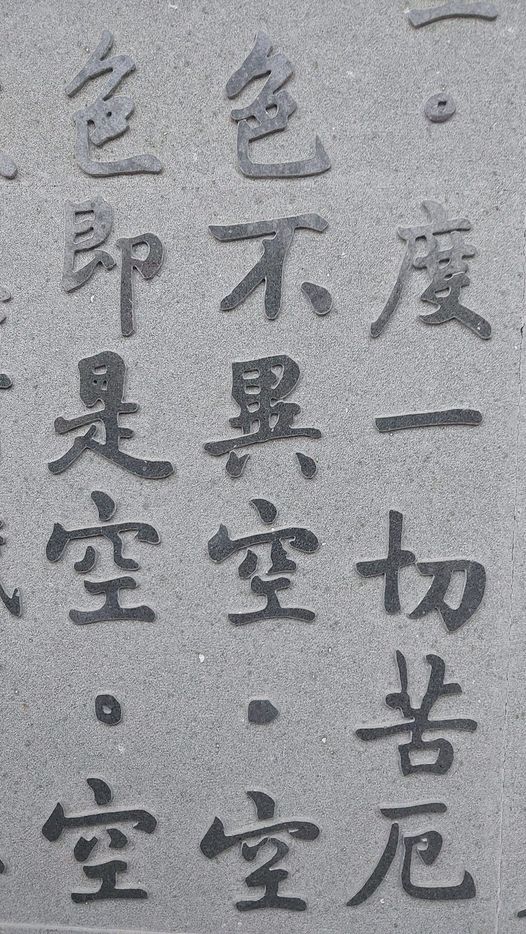 。度一切苦厄
色不異空、空
色即是空。空